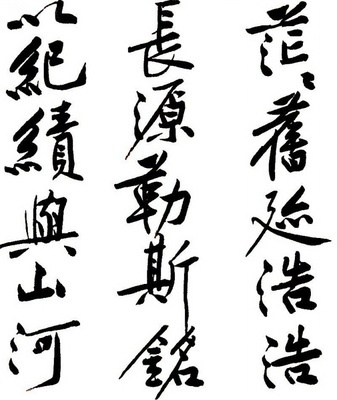 茫々舊迹浩浩
長源勒斯銘
以紀績與山河